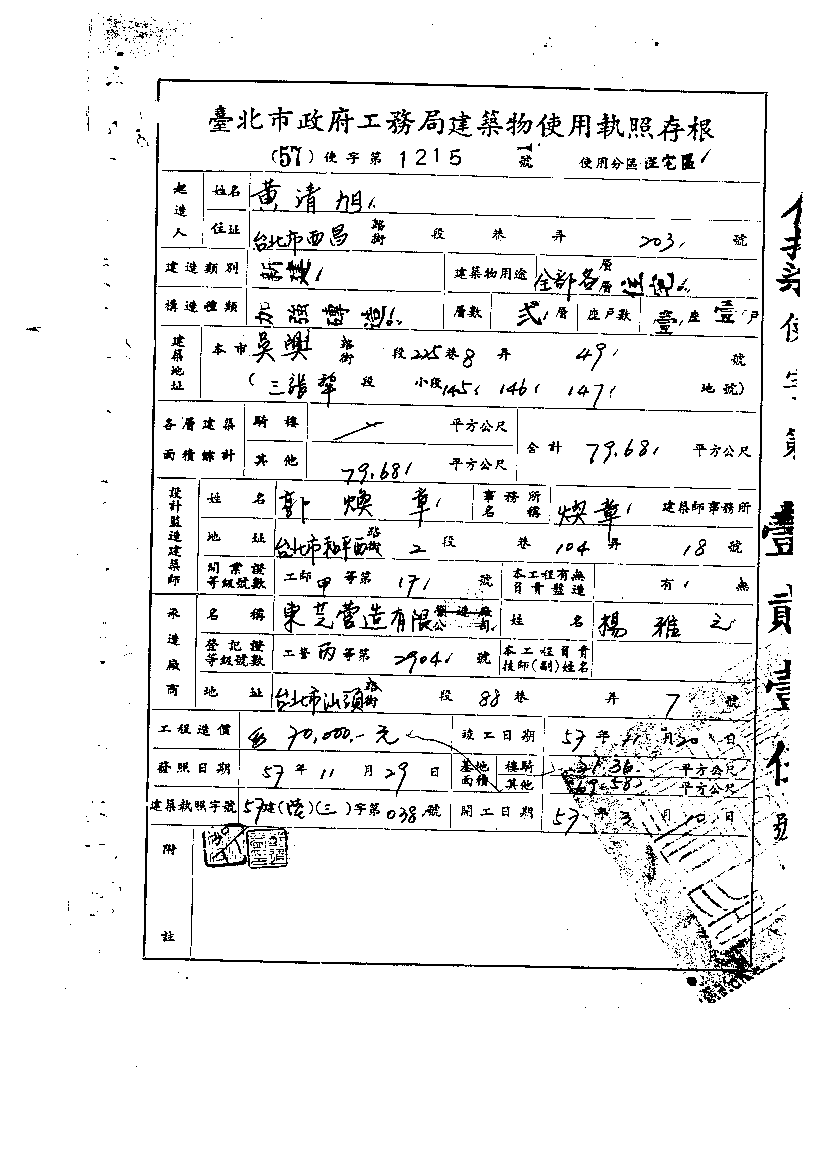 臺北市政府工務局建築物使用執照存根
(57)使字第 1215 號 使用分區 住宅區
起造人 姓名 黃清旭
住址 台北市西昌 路街 段 巷 弄 203 號
建造類別 新建 建築物用途 全部各層層住宅
構造種類 加強磚造 層數 貳層 座戶數 壹座壹戶
建築地址 本市吳興 路街 段 225巷 8弄 49 號
(三張犂段 小段 145 146 147 地號)
各層建築面積總計 騎樓 平方公尺 合計 79.68 平方公尺
其他 79.68 平方公尺
設計監造建築師 姓名 郭煥章 事務所名稱 煥章 建築師事務所
地址 台北市和平西路街 2段 巷 104弄 18號
開業證等級號數 工師甲等第 171 號 本工程有無負責監造 有 無
承造廠商 名稱 東芝營造有限公司 姓名 楊雅之
登記證等級號數 工營丙等第 2904 號 本工程負責技師(副)姓名
地址 台北市汕頭路街 段 88巷 弄 7 號
工程造價 70,000.-元 竣工日期 57年11月20日
發照日期 57年11月29日 基地面積 樓騎 平方公尺
其他 平方公尺
建築執照字號 57建( )(三)字第038號 開工日期 57年3月10日
附註
使字第壹貳壹伍號